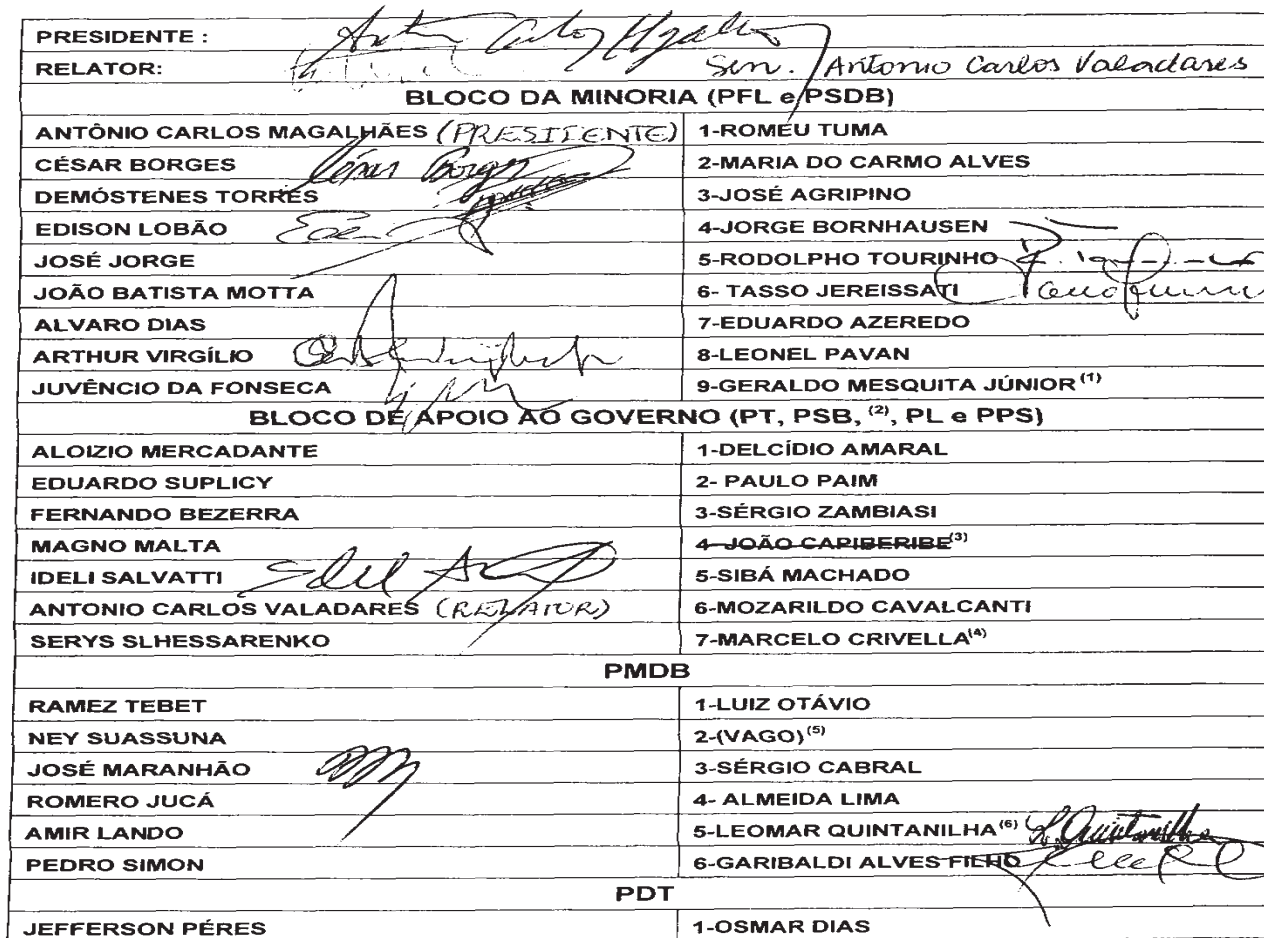 PRESIDENTE :
RELATOR: Sen. Antonio Carlos Valadares
BLOCO DA MINORIA (PFL e PSDB)
ANTÔNIO CARLOS MAGALHÃES (PRESIDENTE) 1-ROMEU TUMA
CÉSAR BORGES César Borges 2-MARIA DO CARMO ALVES
DEMÓSTENES TORRES 3-JOSÉ AGRIPINO
EDISON LOBÃO 4-JORGE BORNHAUSEN
JOSÉ JORGE 5-RODOLPHO TOURINHO
JOÃO BATISTA MOTTA 6- TASSO JEREISSATI
ALVARO DIAS 7-EDUARDO AZEREDO
ARTHUR VIRGÍLIO 8-LEONEL PAVAN
JUVÊNCIO DA FONSECA 9-GERALDO MESQUITA JÚNIOR (1)
BLOCO DE APOIO AO GOVERNO (PT, PSB, (2), PL e PPS)
ALOIZIO MERCADANTE 1-DELCÍDIO AMARAL
EDUARDO SUPLICY 2- PAULO PAIM
FERNANDO BEZERRA 3-SÉRGIO ZAMBIASI
MAGNO MALTA 4-JOÃO CAPIBERIBE(3)
IDELI SALVATTI 5-SIBÁ MACHADO
ANTONIO CARLOS VALADARES (RELATOR) 6-MOZARILDO CAVALCANTI
SERYS SLHESSARENKO 7-MARCELO CRIVELLA(4)
PMDB
RAMEZ TEBET 1-LUIZ OTÁVIO
NEY SUASSUNA 2-(VAGO)(5)
JOSÉ MARANHÃO 3-SÉRGIO CABRAL
ROMERO JUCÁ 4- ALMEIDA LIMA
AMIR LANDO 5-LEOMAR QUINTANILHA(6) L. Quintanilha
PEDRO SIMON 6-GARIBALDI ALVES FILHO
PDT
JEFFERSON PÉRES 1-OSMAR DIAS